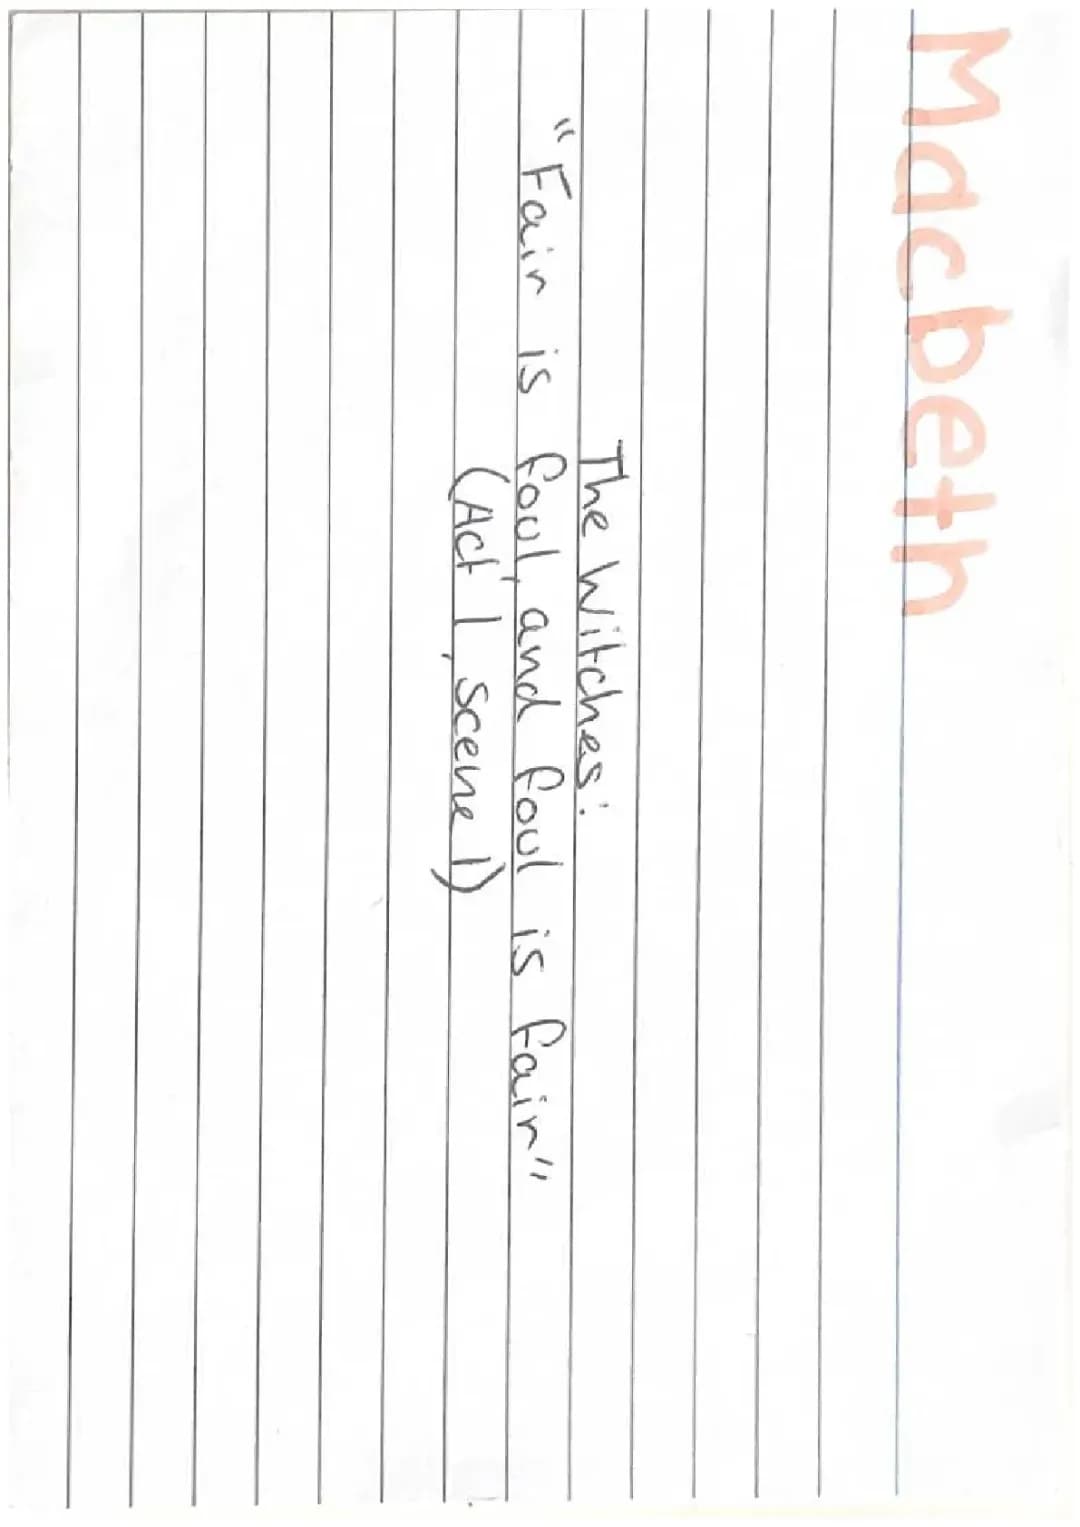 Macbeth
The Witches:
"Fair is foul, and foul is fair"
(Act 1, scene 1)